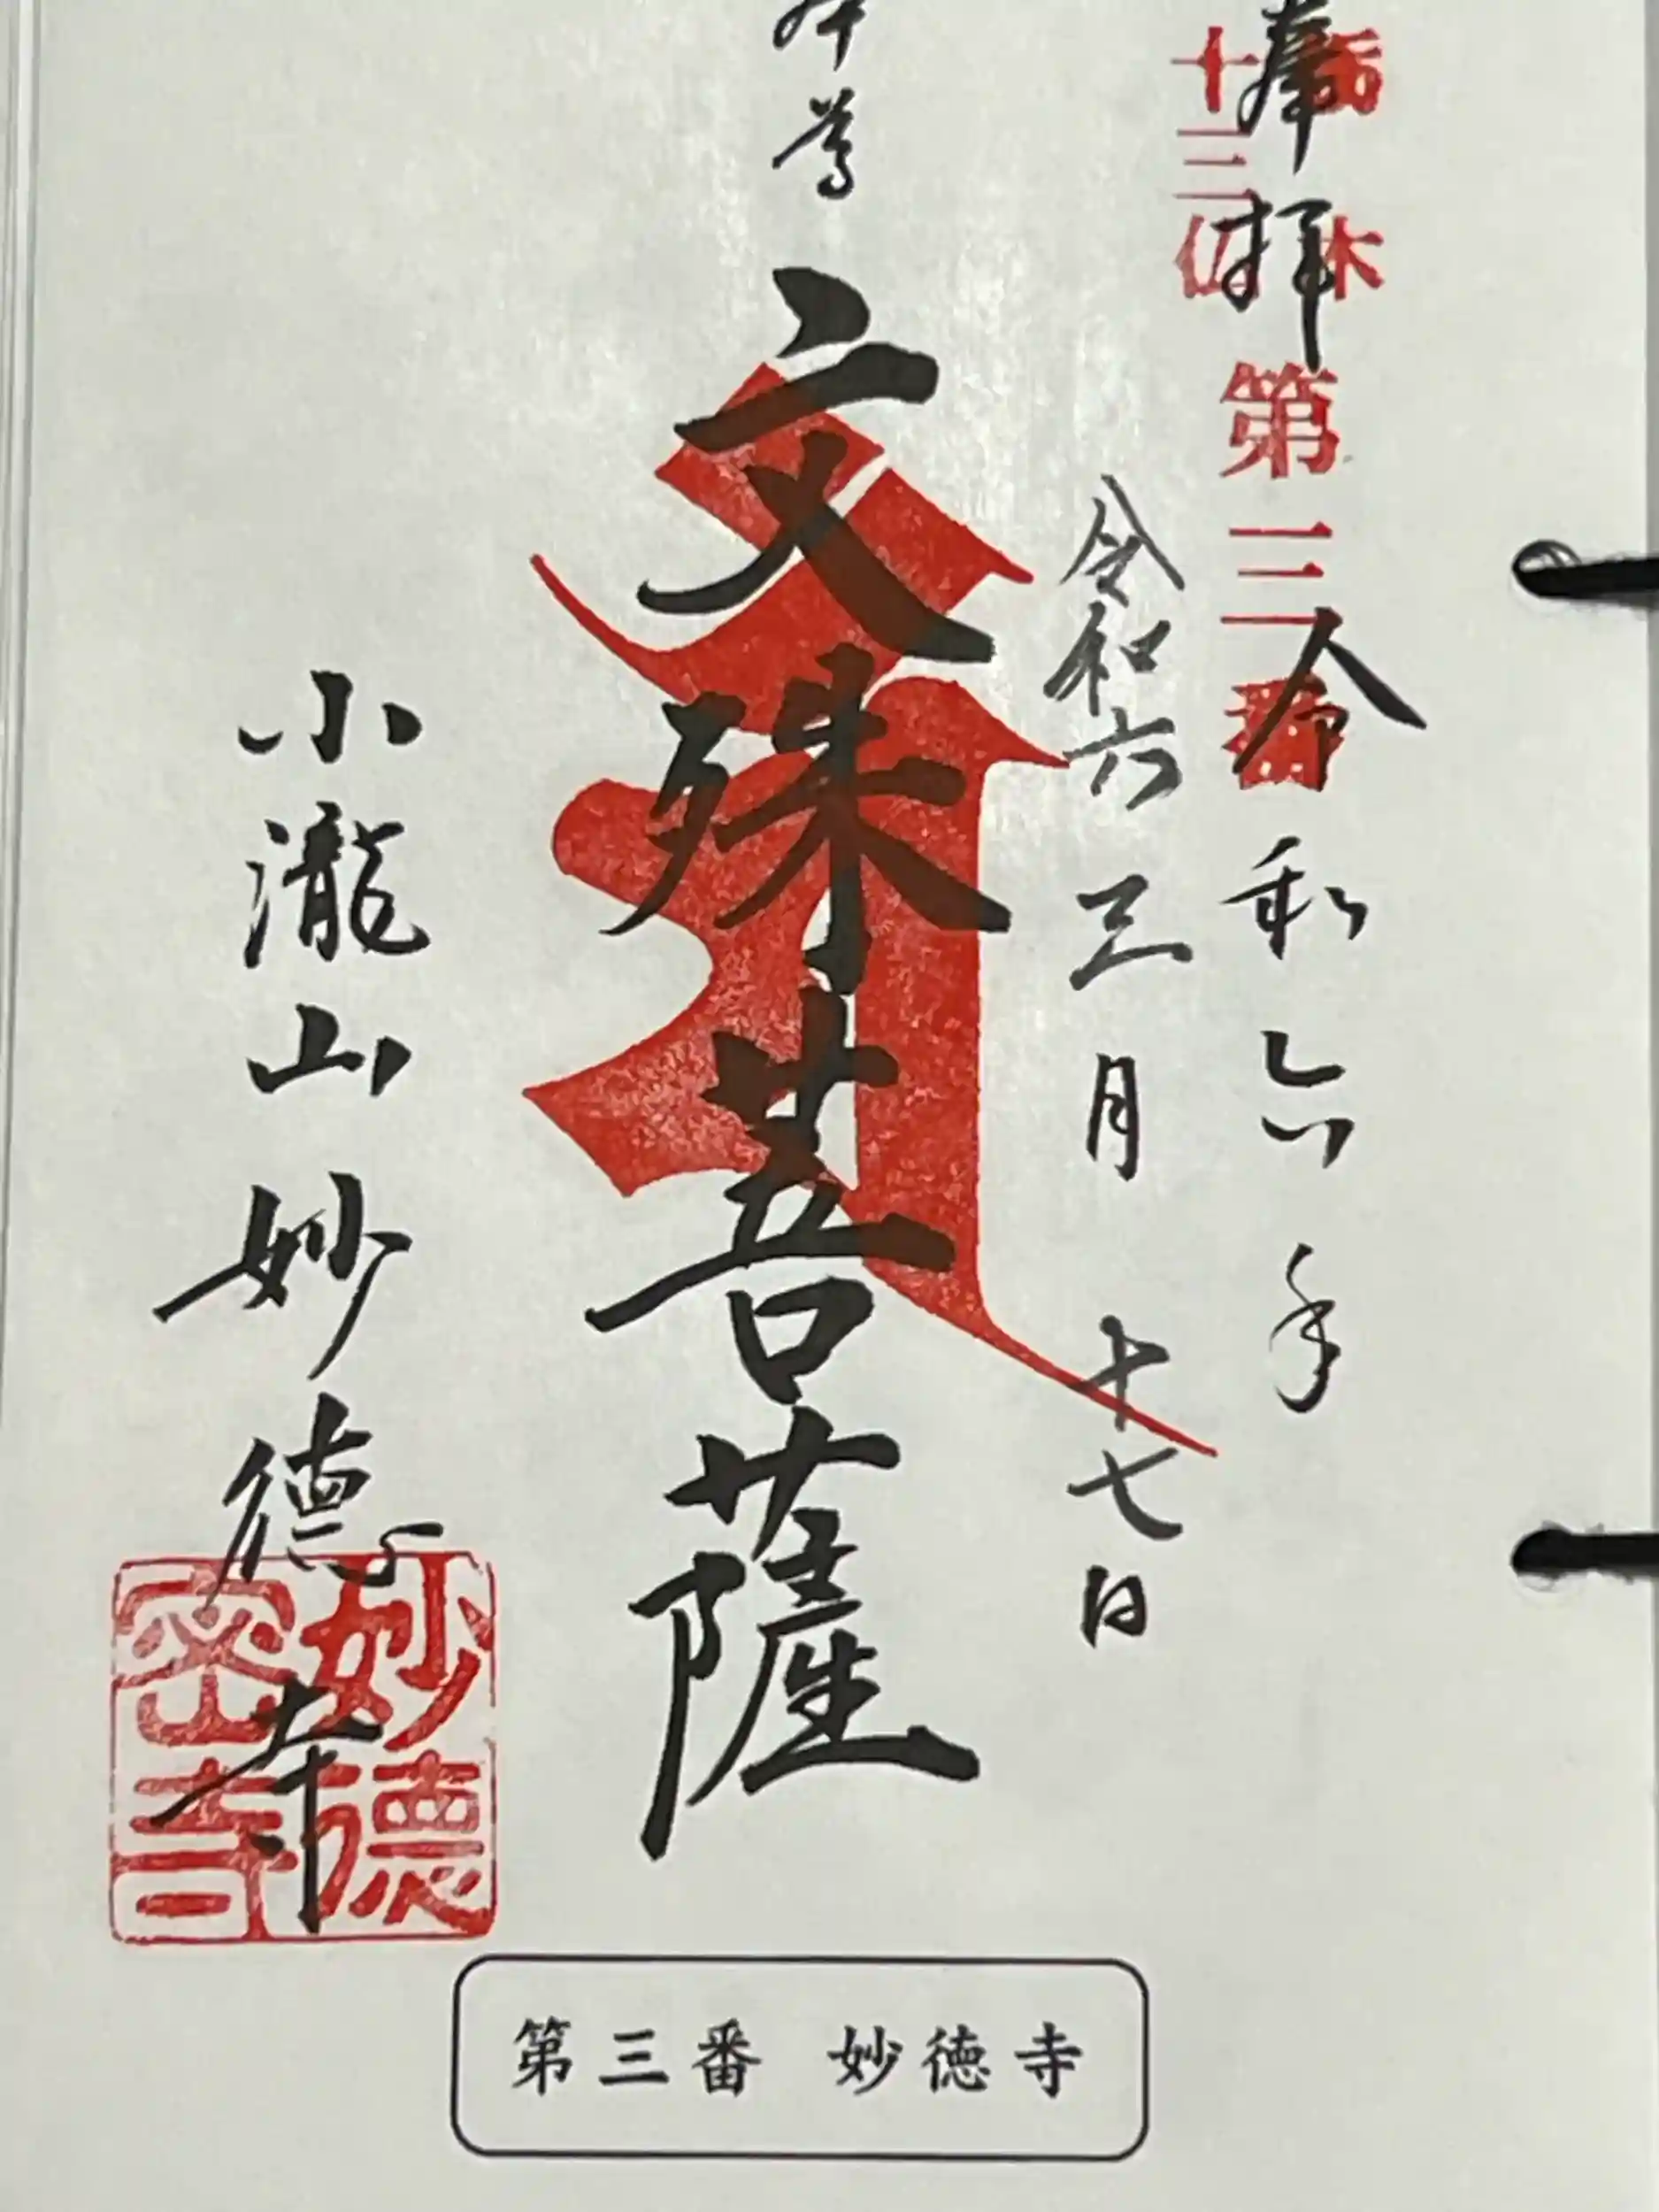 栃木
十三仏
第三番
奉拝 令和六年
令和六 三月十七日
本尊 文殊菩薩
小瀧山妙徳寺
妙徳
密寺
第三番 妙徳寺